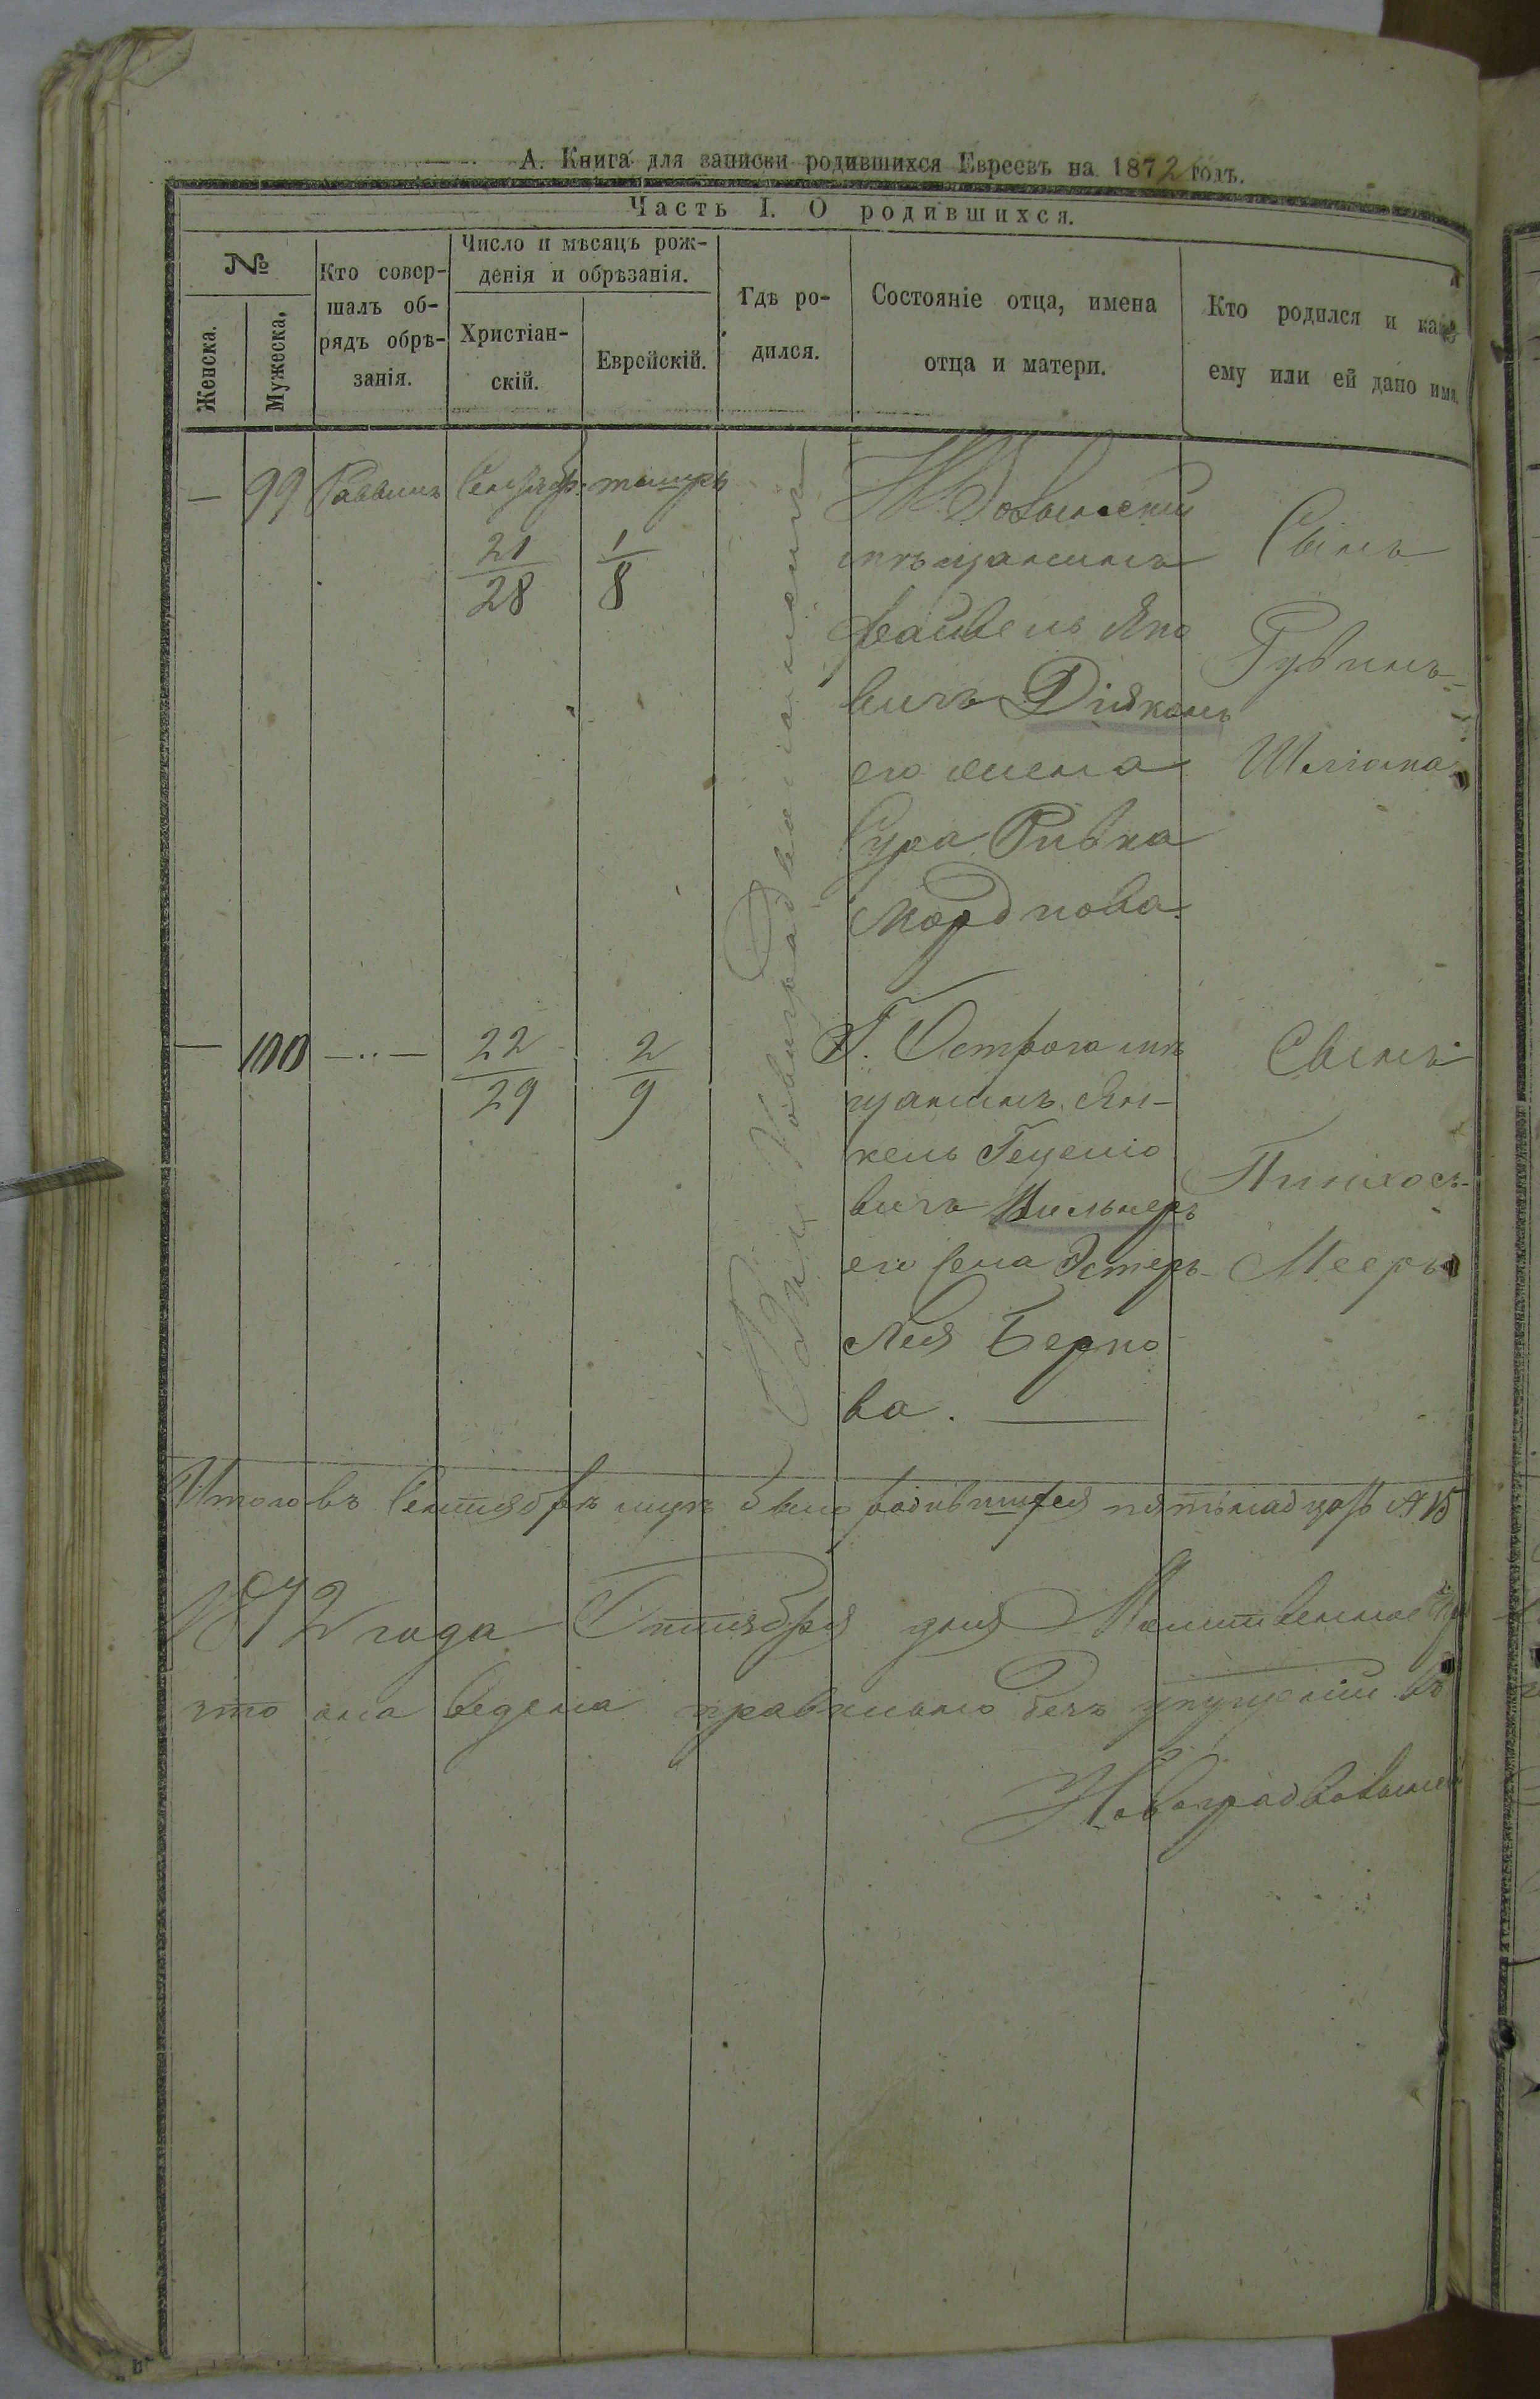 А. Книга для записки родившихся Евреевъ на 1872 годъ.
Часть I. О родившихся.
№
Женска.
Мужеска.
Кто совер-
шалъ об-
рядъ обрѣ-
занія.
Число и мѣсяцъ рож-
денія и обрѣзанія.
Христіан-
скій.
Еврейскій.
Гдѣ ро-
дился.
Состояніе отца, имена
отца и матери.
Кто родился и какое
ему или ей дано имя.
— 99 Раввинъ Сентябр. тишрь
21
28
1
8
Новградволынскъ
НВолынскій
мѣщанинъ
Файвель Янко
вичъ Діяконъ
его жена
Сура Ривка
Мордкова.
Сынъ
Рувинъ-
Шліома
— 100 —··—
22
29
2
9
Г. Острога мѣ
щанинъ Ян-
кель Гецеліо
вичъ Вильнеръ
его жена Эстеръ-
Лея Берко
ва. —
Сынъ
Пинхосъ-
Мееръ
Итого въ Сентябрѣ мцѣ было родившихся пятьнадцать М 15
1872 года Октября дня
что она ведена правильно безъ упущеній въ
Новоградволынск